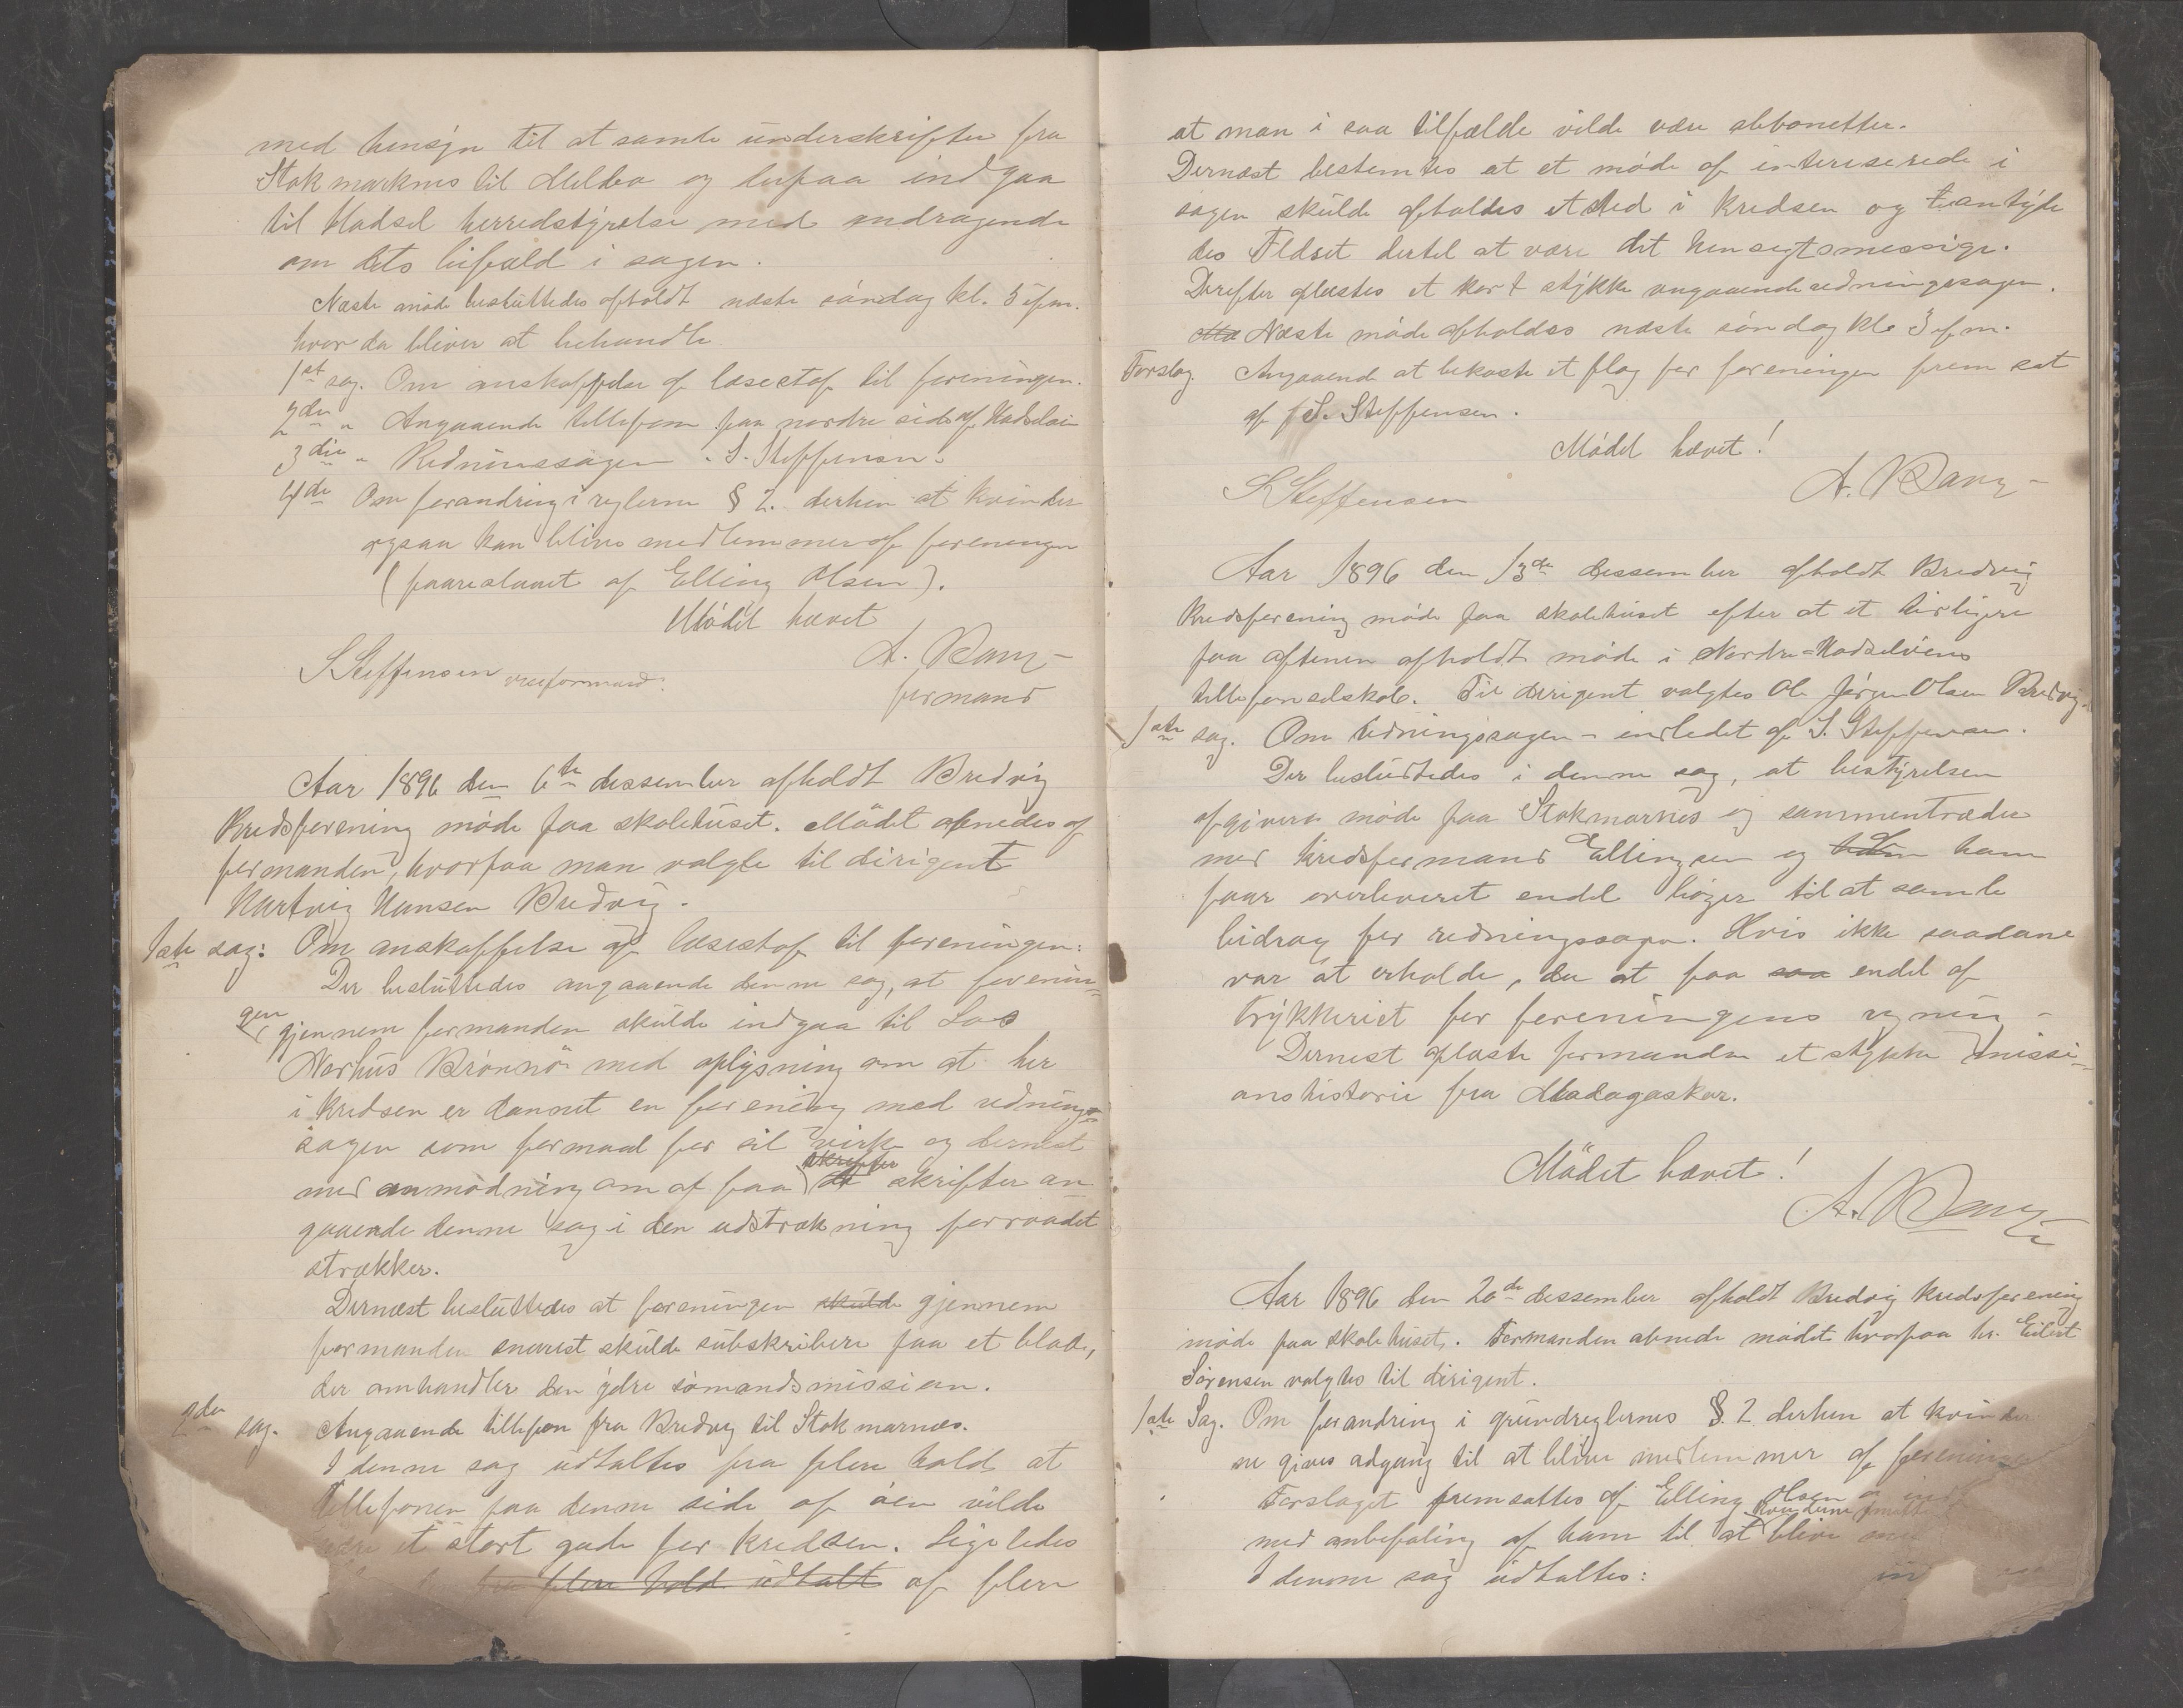 med hensyn til at samle underskrifter fra
Stokmarknes til Melbo og derpaa indgaa
til Hadsel herredstyrelse med andragende
om dets bifæld i sagen.
Næste møde besluttedes afholdt næste søndag kl. 5 efm.
hvor da bliver at behandle
1st sag. Om anskaffelse af læsestof til foreningen.
2den " Angaaende tellefon paa nordre side af Hadseløi
3die " Redningssagen . S. Steffensen.
4de Om forandring i reglerne § 2. derhen at kvinder
ogsaa kan blive medlemmer af foreningen
(foareslaaet af Elling Olsen).
Mödet hævet
A. Bang
S Steffensen viseformand.
formand
Aar 1896 den 6te dessember afholdt Bredvig
Kredsforening møde paa skolehuset. Mödet abnedes af
formanden, hvorpaa man valgte til dirigent
Hartvig Hansen Bredvig.
1ste sag: Om anskaffelse af læsestof til foreningen:
Der besluttedes angaaende denne sag, at forenin-
gen gjennem formanden skulde indgaa til
Brönnö med oplysning om at her
i kredsen er dannet en forening med rednings-
sagen som formaal for sit virke og dernæst
med anmodning om at faa skrifter skrifter an-
gaaende denne sag i den udstrækning forraadet
strækker.
Dernæst besluttedes at foreningen skulde gjennem
formanden snarest skulde subskribere paa et blad,
der omhandler den ydre sömandsmission.
2den sag. Angaaende tillefon fra Bredvig til Stokmarnæs.
I denne sag udtaltes fra flere hold at
tellefonen paa denne side af öen vilde
være et stort gode for kredsen. Ligeledes
fra flere hold udtalt af flere
at man i saa tilfælde vilde være abbonetter.
Dernæst bestemtes at et møde af interiserede i
sagen skulde afholdes etsted i kredsen og
des Fldset dertil at være det hensigtsmessige.
Derefter oplæstes et kort stykke angaaende redningssagen.
Næste møde afholdes næste söndag kl. 3 efm.
Forslag. Angaaende at bekoste et flag for foreningen frem sat
af S. Steffensen.
Mödet hævet!
S Steffensen A. Bang
Aar 1896 den 13de dessember afholdt Bredvig
Kredsforening møde paa skolehuset efter at et tidligere
paa aftenen afholdt møde i Nordre-Hadselöens
tellefonselskab. Til dirigent valgtes Ole Jörgen Olsen Bredvig.
1ste sag. Om redningssagen - indledet af S. Steffensen.
Der besluttedes i denne sag, at bestyrelsen
afgiver møde paa Stokmarnes og sammentræder
med kredsformand Ellingsen og ham
faar overleveret endel böger til at samle
bidrag for redningssagen. Hvis ikke saadane
var at erholde, da at faa saa endel af
trykkeriet for foreningens regning -
Dernest oplæste formanden et stykke missi-
onshistorie fra Madagaskar.
Mödet hævet!
A. Bang
Aar 1896 den 20de dessember afholdt Bredvig kredsforening
möde paa skolehuset. Formanden abnede mödet hvorpaa hr. Eilert
Sörensen valgtes til dirigent.
1ste Sag. Om forandring i grundreglernes §. 2 derhen at kvinder
ne gives adgang til at blive medlemmer af forening
Forslaget fremsattes af Elling Olsen
kvinderne
med anbefaling af ham til at blive
I denne sag udtaltes: